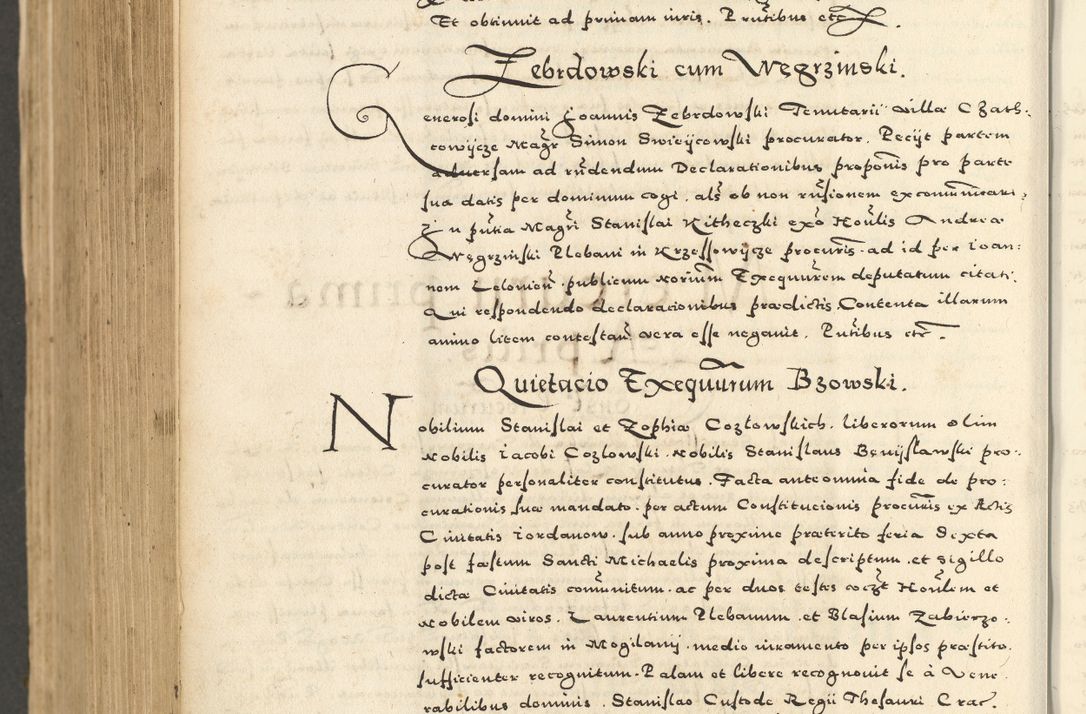 Et obtinuit ad primam iuris. Pntibus etc.
Zebrdowski cum Węgrzinski.
Generosi domini Joannis Zebrdowski Tenutarii villæ Czath:
cowijcze Magr Simon Swieijcowski procurator. Recijt partem
aduersam ad rñdendum Declarationibus proponis pro parte
sua datis per dominum cogi. als ob non rñsionem excommunicari,
In pñtia Magri Stanislai Kitheczki exo Honlis Andreæ
Węgrzinski Plebani in Krzessowijcze procuris. ad id per Ioan:
nem Zelonien. publicum Norium Exequurem deputatum citati.
Qui respondendo declaracionibus prædictis Contenta illarum
animo litem contestan vera esse negauit. Pntibus etc.
Quietacio Exequurum Bzowski.
Nobilium Stanislai et Zophiæ Cozlowskich. liberorum olim
Nobilis Iacobi Cozlowski. Nobilis Stanislaus Benijslawski pro:
curator personaliter constitutus. Facta anteomnia fide de pro:
curationis suæ mandato. per actum Constitucionis procuris ex Actis
Ciuitatis Iordanow. sub anno proxime præterito feria Sexta
post festum Sancti Michaelis proxima descriptum. et sigillo
dictæ Ciuitatis communitum. ac per duos testes Honlem et
Nobilem viros. Laurentium Plebanum. et Blasium Zabierzo:
wski factorem in Mogilanij. medio iuramento per ipsos præstito.
sufficienter recognitum. Palam et libere recognouit se à Vene
rabilibus dominis. Stanislao Custode Regii Thesauri Crac.